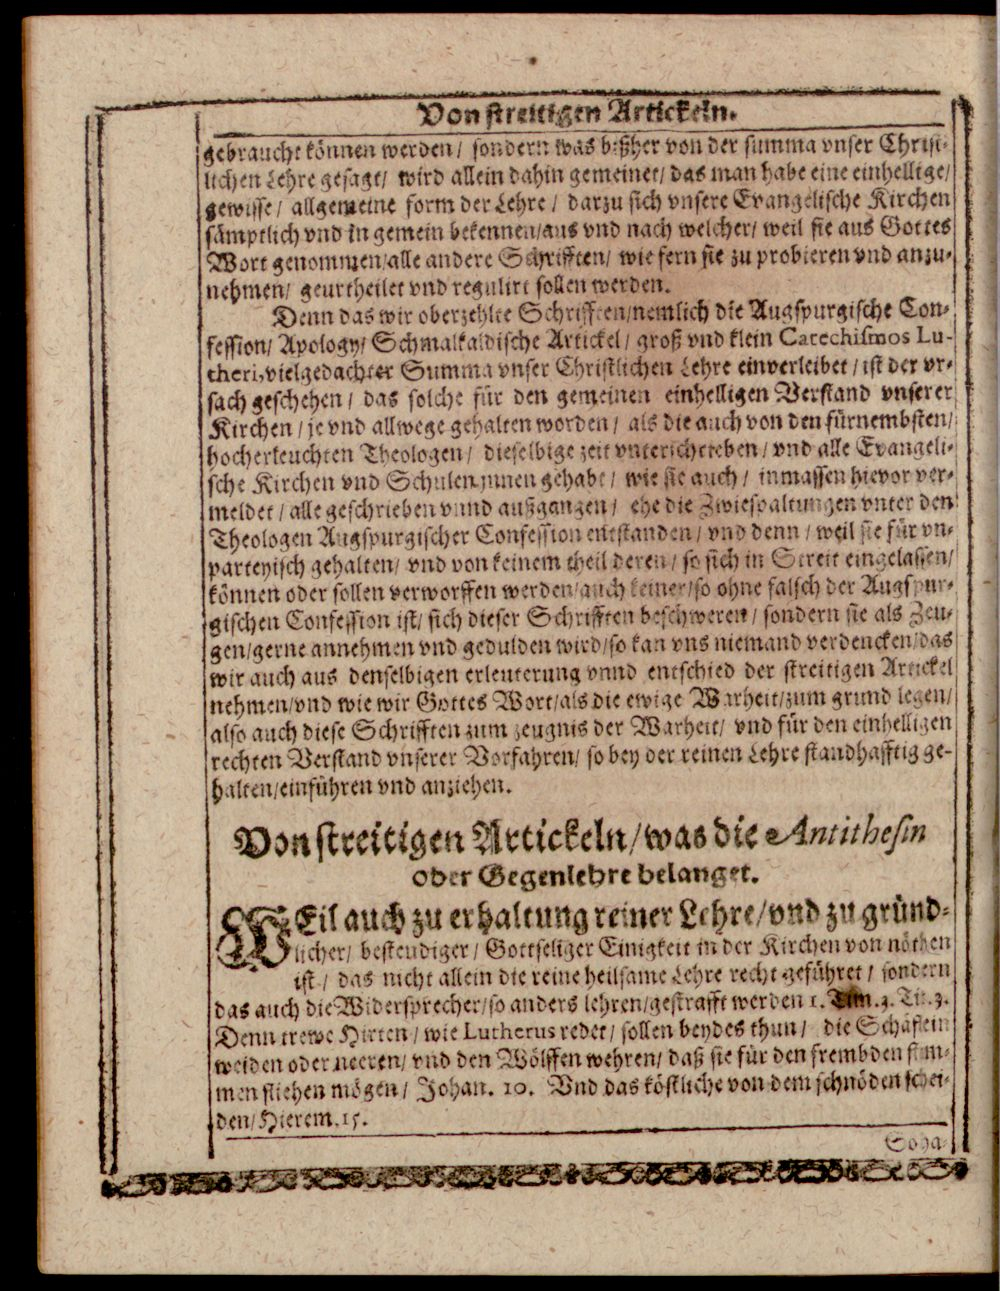 Von streitigen Artickeln.
gebraucht können werden / sondern was bißher von der summa vnser Christ-
lichen Lehre gesagt / wird allein dahin gemeinet / das man habe eine einhellige /
gewisse / allgemeine form der Lehre / darzu sich vnsere Evangelische Kirchen
sämptlich vnd in gemein bekennen / aus vnd nach welcher / weil sie aus Gottes
Wort genommen / alle andere Schrifften / wie fern sie zu probieren vnd anzu-
nehmen / geurtheilet vnd regulirt sollen werden.
Denn das wir oberzehlte Schrifften / nemlich die Augspurgische Con-
fession / Apology / Schmalkaldische Artickel / groß vnd klein Catechismos Lu-
theri, vielgedachter Summa vnser Christlichen Lehre einverleibet / ist der vr-
sach geschehen / das solche für den gemeinen einhelligen Verstand vnserer
Kirchen / je vnd allwege gehalten worden / als die auch von den fürnembsten /
hocherleuchten Theologen / dieselbige zeit vnterschrieben / vnd alle Evangeli-
sche Kirchen vnd Schulen innen gehabt / wie sie auch / inmassen hievor ver-
meldet / alle geschrieben vnnd außgangen / ehe die Zwiespaltungen vnter den
Theologen Augspurgischer Confession entstanden / vnd denn / weil sie für vn-
parteyisch gehalten / vnd von keinem theil deren / so sich in Streit eingelassen /
können oder sollen verworffen werden / auch keiner / so ohne falsch der Augspur-
gischen Confession ist / sich dieser Schrifften beschweren / sondern sie als Zeu-
gen / gerne annehmen vnd gedulden wird / so kan vns niemand verdencken / das
wir auch aus denselbigen erleuterung vnnd entschied der streitigen Artickel
nehmen / vnd wie wir Gottes Wort / als die ewige Warheit / zum grund legen /
also auch diese Schrifften zum zeugnis der Warheit / vnd für den einhelligen
rechten Verstand vnserer Vorfahren / so bey der reinen Lehre standhafftig ge-
halten / einführen vnd anziehen.
Von streitigen Artickeln / was die Antithesin
oder Gegenlehre belanget.
WEil auch zu erhaltung reiner Lehre / vnd zu gründ-
licher / bestendiger / Gottseliger Einigkeit in der Kirchen von nöthen
ist / das nicht allein die reine heilsame Lehre recht geführet / sondern
das auch die Widersprecher / so anders lehren / gestrafft werden 1. Tim. 3. Tit. 3.
Denn trewe Hirten / wie Lutherus redet / sollen beydes thun / die Schäflein
weiden oder neeren / vnd den Wölffen wehren / daß sie für den frembden stim-
men fliehen mögen / Johan. 10. Vnd das köstliche von dem schnöden schei-
den / Hierem. 15.